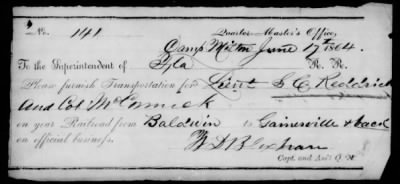 No. 141 Quarter-Master's Office,
Camp Milton June 17th 1864.
To the Superintendent of Fla R. R.
Please furnish Transportation for Lieut S. C. Reddick
and Col McCormick
on your Railroad from Baldwin to Gainesville & back
on official business.
W D Bloxham
Capt. and Ass't Q. M.